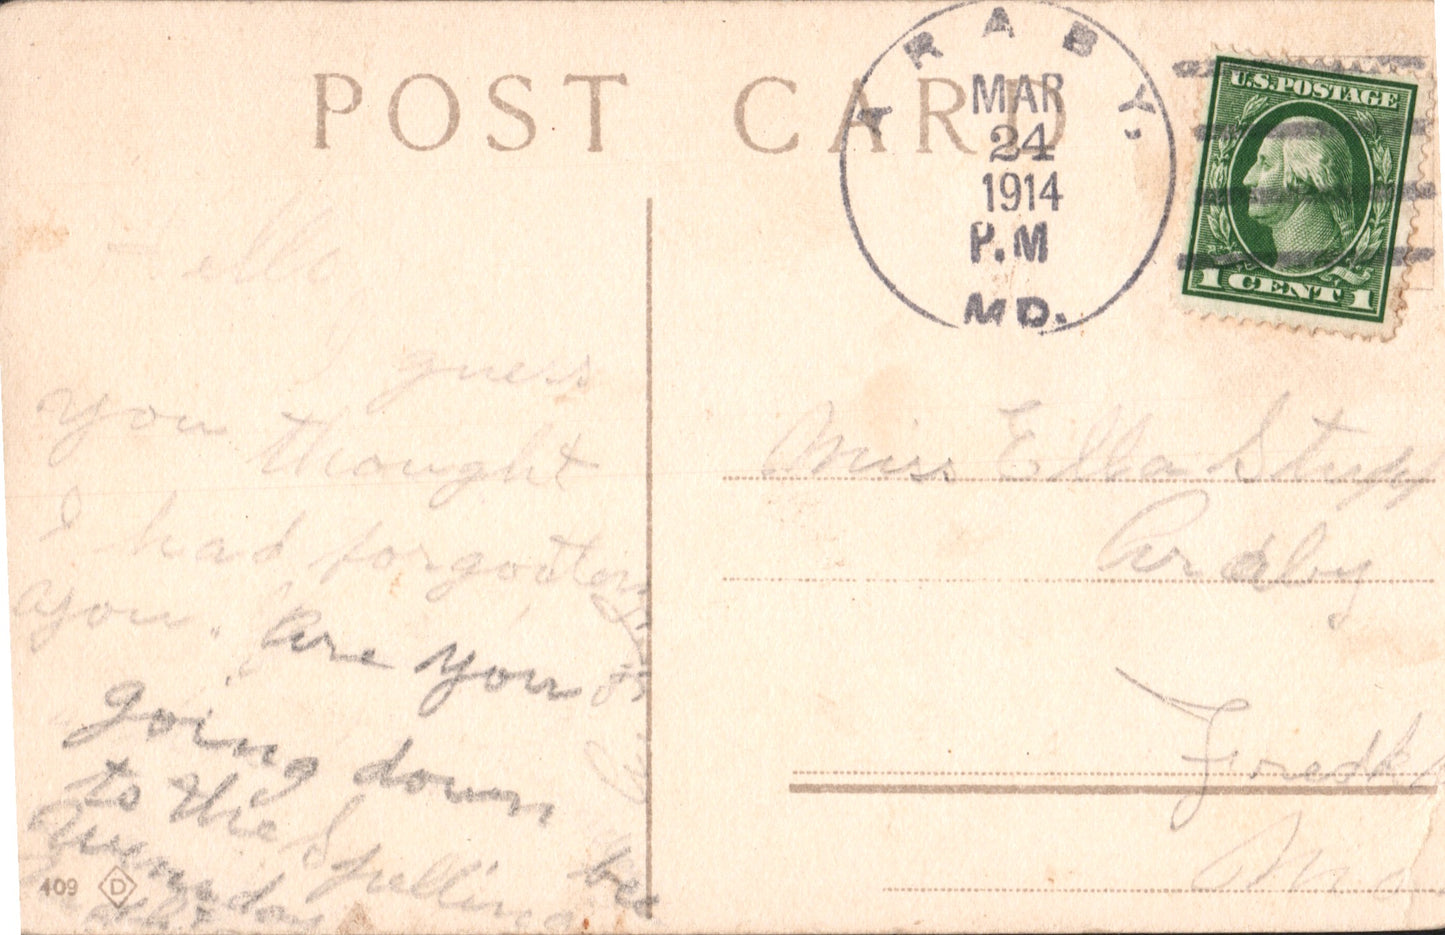 POST CARD
ARABY,
MAR
24
1914
P.M
MD.
U.S.POSTAGE
1 CENT 1
Hello
I guess
you thought
I had forgotten
you. Are you
going down
to the Spelling bee
Miss Ella Stupp
Araby
Fredk
Md
409 D